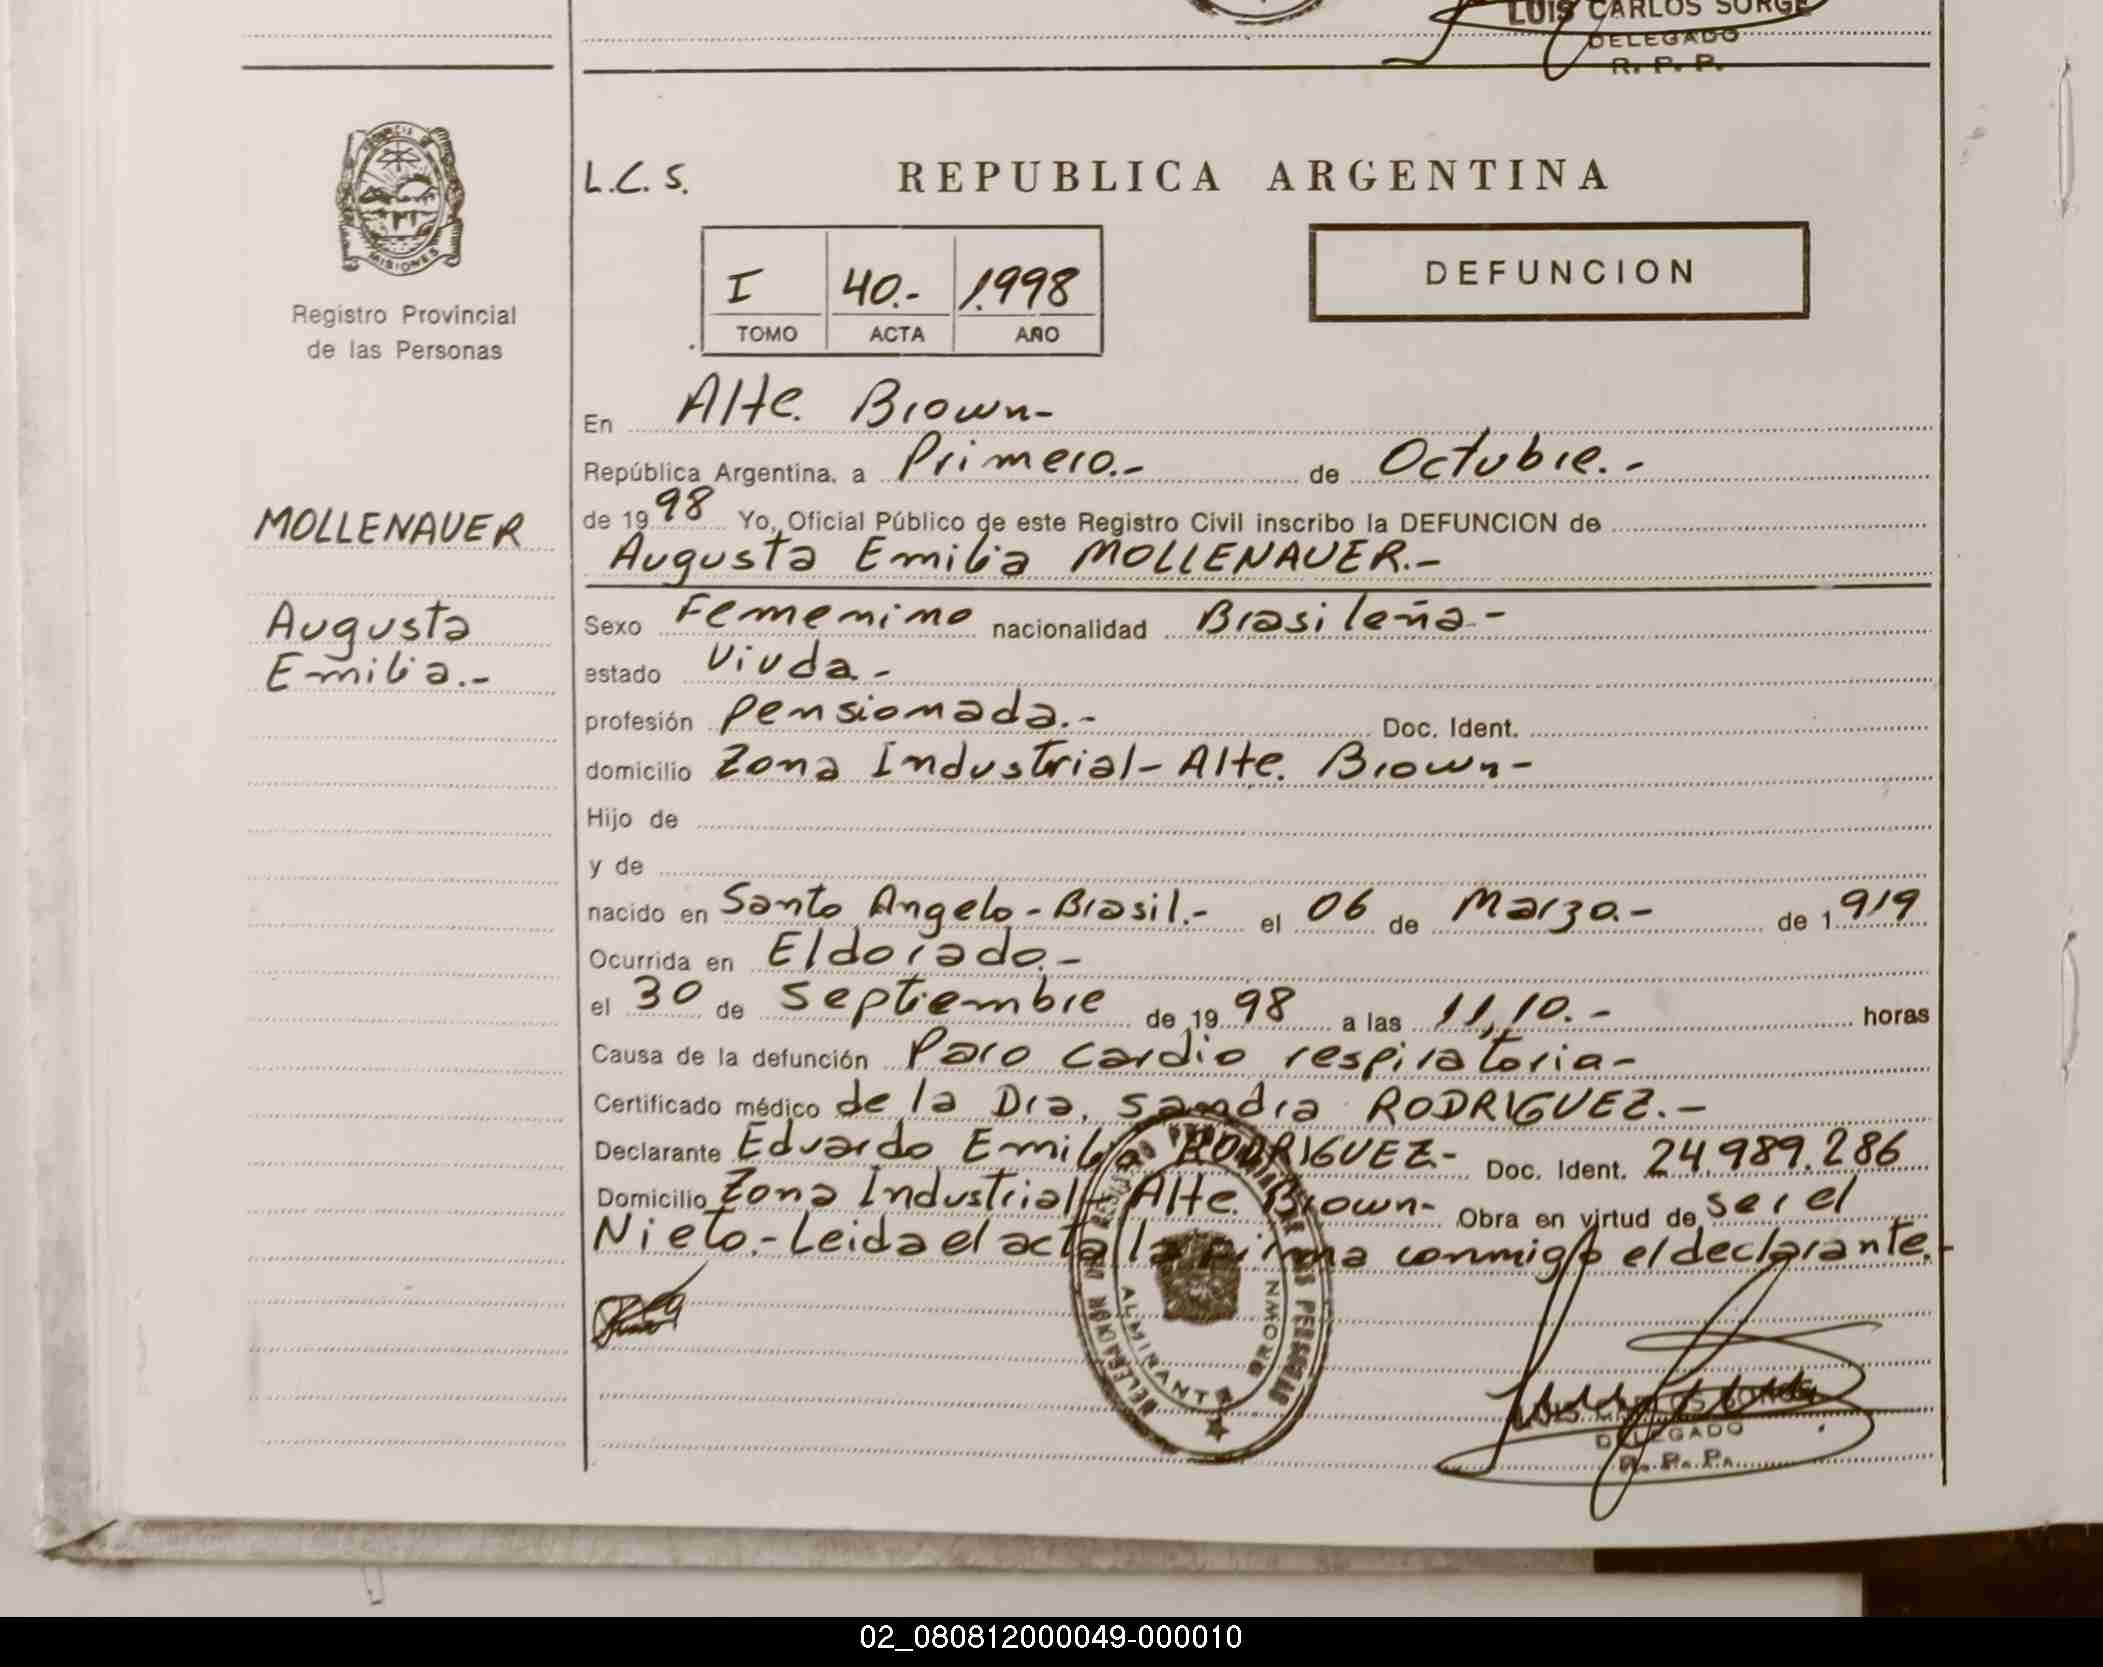 LUIS CARLOS SORGE
DELEGADO
R. P. P.
PROVINCIA DE
MISIONES
Registro Provincial
de las Personas
L.C.S.
REPUBLICA ARGENTINA
I 40.- 1.998
TOMO ACTA AÑO
DEFUNCION
En Alte. Brown-
República Argentina, a Primero.- de Octubre.-
MOLLENAUER
de 1998 Yo, Oficial Público de este Registro Civil inscribo la DEFUNCION de
Augusta Emilia MOLLENAUER.-
Augusta
Emilia.-
Sexo Femenino nacionalidad Brasileña.-
estado Viuda.-
profesión Pensionada.- Doc. Ident.
domicilio Zona Industrial- Alte. Brown-
Hijo de
y de
nacido en Santo Angelo-Brasil.- el 06 de Marzo.- de 1919
Ocurrida en Eldorado.-
el 30 de Septiembre de 1998 a las 11,10.- horas
Causa de la defunción Paro cardio respiratoria-
Certificado médico de la Dra. Sandra RODRIGUEZ.-
Declarante Eduardo Emilio RODRIGUEZ- Doc. Ident. 24.989.286
Domicilio Zona Industrial- Alte. Brown- Obra en virtud de ser el
Nieto.- Leida el acta la firma conmigo el declarante.-
ALMIRANTE BROWN
LUIS CARLOS SORGE
DELEGADO
R. P. P.
02_080812000049-000010